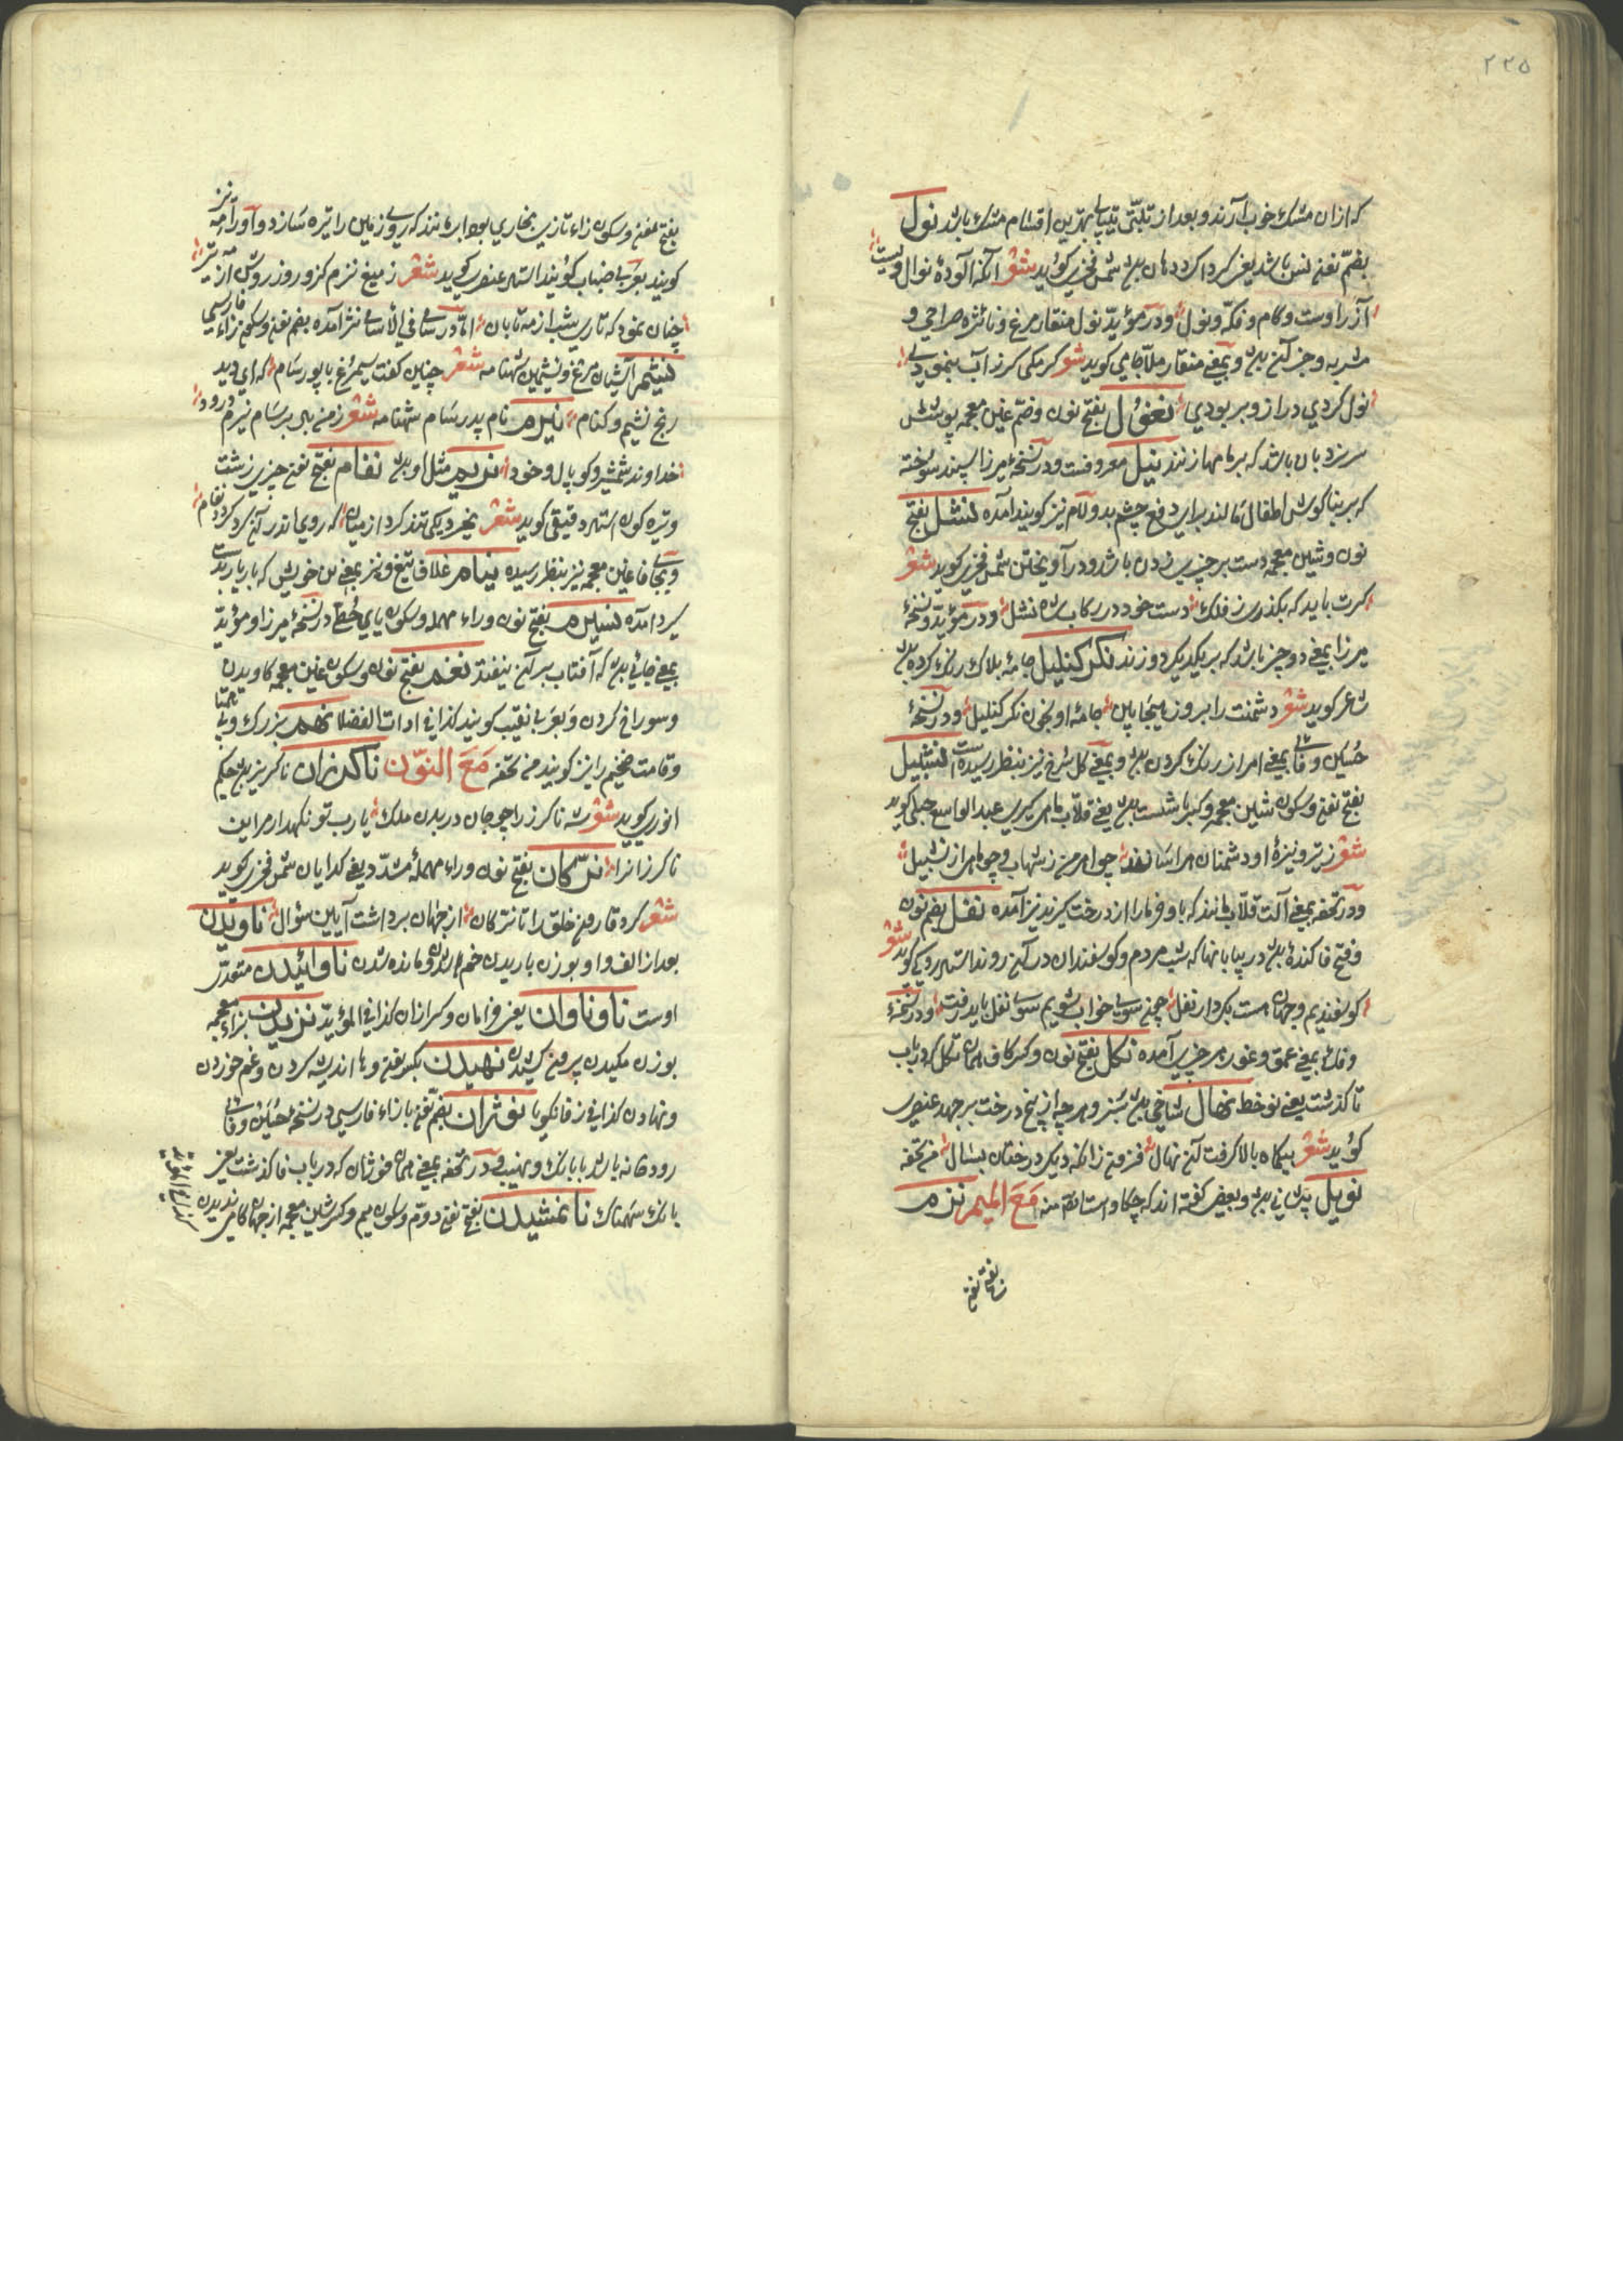 ٢٢٥
که ازان مشک خوب آرند و بعد از تبتی نیپالی بهترین اقسام مشک باشد نول
بضم نغنغ باشد یعنی گرد اگرد دهان بود شمس فخری گوید شعر آنکه آلودهٔ نوال ویست
آز را دست و کام و فک و نول و در مؤید نول منقار مرغ و نائزه صراحی و
مشربه و جز آن بود و بمعنی منقار ملا جامی گوید شعر گر مگس گر ز آب بنمودی
نول کردی دراز و بربودی نغول بفتح نون و ضم غین معجمه پوشش
سر نردبان باشد که بر بامها سازند نیل معروفست و در نسخهٔ میرزا سپند سوخته
که بر بناگوش اطفال مالند برای دفع چشم بد و لام نیز گویند آمده نشل بفتح
نون و شین معجمه دست بر چیزی زدن باشد و در آویختن شمس فخری گوید شعر
گرت باید که بگذری ز فلک دست خود در رکاب شه نشل و در مؤید و نسخهٔ
میرزا بمعنی دو چیز باشد که بر یکدیگر دوزند نکرکنلیل جامهٔ بلاک رنگ کرده بود
شاعر گوید شعر دشمنت را بروز هیجا بین جامهٔ او بخون نکرکنلیل و در نسخهٔ
حسین وفائی بمعنی امر از رنگ کردن بود و بمعنی گل سرخ نیز بنظر رسیده است نشبیل
بفتح نغنغ و سکون شین معجمه و کسر با شست بود یعنی قلاب ماهی گیری عبدالواسع جبلی گوید
شعر ز تیر و نیزهٔ او دشمنان هراسانند چو اهرمن ز شهاب و چو ماهی از نشبیل
و در تحفه بمعنی آلت قلاب مانند که با او خرما را از درخت گیرند نیز آمده نغل بضم نون
و فتح فا کندهٔ بود در بیابانها که شب مردم و گوسفندان در آن روند استاد رودکی گوید شعر
گوسفندیم و جهان هست بکردار نغل چون سوی خواب شویم سوی نغل باید رفت و در نسخهٔ
وفائی بمعنی عمق و غور هر چیزی آمده نکل بفتح نون و کسر کاف همان تکل که در باب
تا گذشت یعنی نو خط نهال شاخی بود سبز و هر چه از بیخ درخت بر جهد عنصری
گوید شعر بیکماه بالا گرفت آن نهال فزون زانکه دیگر درختان بسال من تحفه
نویل پرنده ایست و بعضی گفته اند که چکاو است ایضا منه مَعَ المیم نزم
بفتح نغنغ
بفتح نغنغ و سکون زاء تازی بخاری بود ابر مانند که روی زمین را تیره سازد و آنرا مه نیز
گویند بعربی ضباب گویند استاد عنصری گوید شعر ز میغ نزم کز و روز روشن از مه تیر
چنان نمود که تاری شب از مه تابان اما در سامی فی الاسامی نژ آمده بضم نغنغ و سکون زاء فارسی
نشیم آشیان مرغ و نشیمن شهنامه شعر چنین گفت سیمرغ با پور سام که ای دیده
رنج نشیم و کنام نیرم نام پدر سام شهنامه شعر ز من باد بر سام نیرم درود
خداوند شمشیر و کوپال و خود نریم مثل او بود نفام بفتح نغنغ چیزی زشت
و تیره گون استاد دقیقی گوید شعر بخیره یکی تند گرد از میان که روی اندر آن گرد گردد نفام
و بجای فا غین معجمه نیز بنظر رسیده نیام غلاف تیغ و نیز بمعنی
نسیرم بفتح نون و راء مهمله و سکون یای حطی در نسخهٔ میرزا و مؤید
بمعنی جائی بود که آفتاب بر آن نیفتد نغم بفتح نون و سکون غین معجمه کاویدن
و سوراخ کردن و بعربی نقیب گویند کذا فی ادات الفضلا نهم بزرگ و بی همتا
و قامت ضخیم را نیز گویند من تحفه مَعَ النّون ناگزران ناگزیر بود حکیم
انوری گوید شعر شه ناگزر را چو جان در بدن ملک یا رب تو نگهدار مر این
ناگزران را نرّگان بفتح نون و راء مهملهٔ مشدد یعنی گدایان شمس فخری گوید
شعر کرد قارون خلق را تا نرگان از جهان برداشت آیین سؤال ناویدن
بعد از الف واو بوزن باریدن خم شدن و مانده شدن ناوانیدن متعدی
اوست ناوناوان یعنی خرامان و گرازان کذا فی المؤید نزیدن بزاء معجمه
بوزن مکیدن بیرون کشیدن نهیدن بکسر نغنغ و ها اندیشه کردن و غم خوردن
و نهادن کذا فی زفانگویا نوژان بضم نغنغ با زاء فارسی در نسخهٔ حسین وفائی
رودخانه باشد با بانگ و مهیب و در تحفه بمعنی همان فوژان که در باب فا گذشت یعنی
بانگ سهمناک نانمشیدن بفتح نغنغ دوم و سکون میم و کسر شین معجمه از جهان کام ندیدن